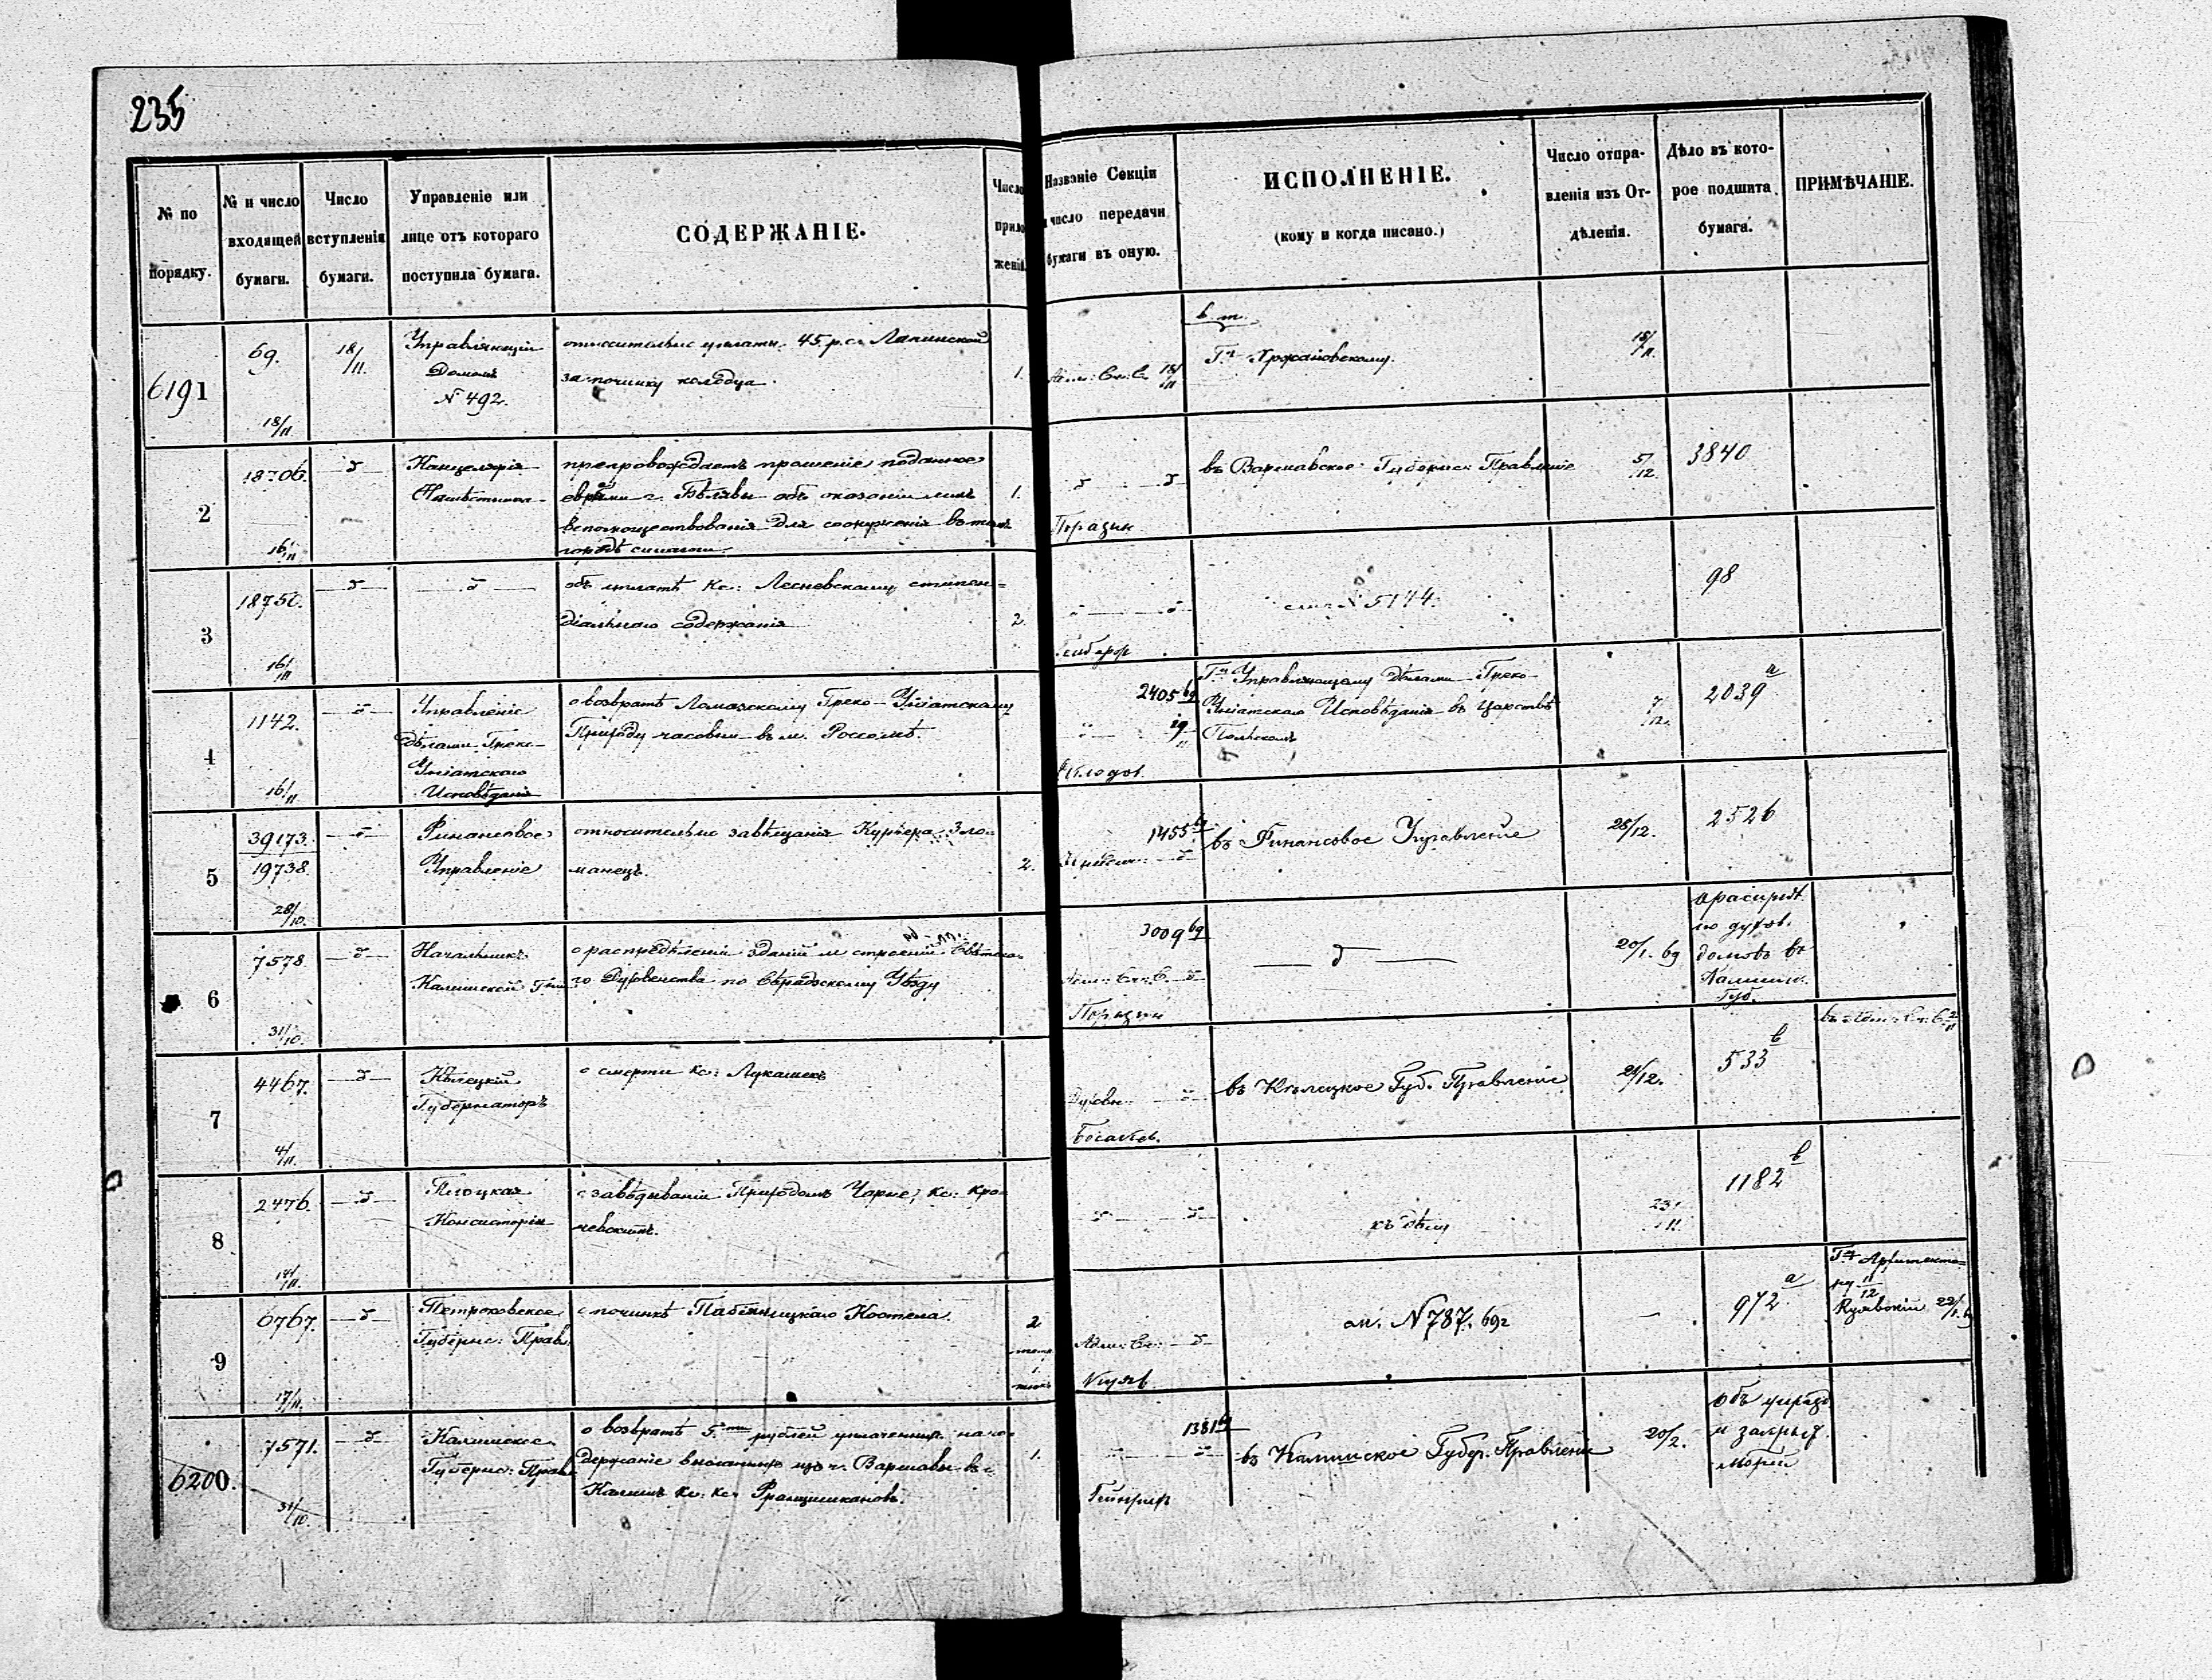 235
№ по порядку.
№ и число входящей бумаги.
Число вступленія бумаги.
Управленіе или лице отъ котораго поступила бумага.
СОДЕРЖАНІЕ.
Число приложеній.
Названіе Секціи и число передачи бумаги въ оную.
ИСПОЛНЕНІЕ.
(кому и когда писано.)
Число отправленія изъ Отдѣленія.
Дѣло въ которое подшита бумага.
ПРИМѢЧАНІЕ.
6191
69.
18/11
18/11.
Управляющій
Домомъ
N 492.
относительно уплаты 45 р.с. Лапинской
за починку колодца.
1.
18/11
в. т.
Гну Хржановскому.
18/11.
2
18706.
16/11
Канцелярія
Намѣстника
препровождаетъ прошеніе поданное
евреями г. Бѣлявы объ оказаніи имъ
вспомоществованія для сооруженія въ томъ
городѣ синагоги.
1.
въ Варшавское Губернск: Правленіе
5/12.
3840
3
18750.
16/11
объ уплатѣ Кс: Лесневскому стипен=
діальнаго содержанія
2.
N 5144.
98
4
1142.
16/11
Управленіе
дѣлами Греко-
Уніатскаго
Исповѣданія
о возвратѣ Ломазскому Греко-Уніатскому
Приходу часовни въ м. Россошѣ.
2405 69
19/11
Гну Управляющему Дѣлами Греко-
Уніатскаго Исповѣданія въ Царствѣ
Польскомъ
7/12.
2039 а
5
39173.
19738.
28/10.
Финансовое
Управленіе
относительно завѣщанія Курьера Зло=
манецъ.
2.
1455 69
въ Финансовое Управленіе
28/12.
2526
6
7578.
31/10.
Начальникъ
Калишской Губ:
о распредѣленіи зданій и строеній Свѣтска=
го Духовенства по Сѣрадзскому Уѣзду
3009 69
20/1. 69
о распредѣ
духов.
домовъ въ
Калишс.
Губ.
7
4467.
4/11.
Кѣлецкій
Губернаторъ
о смерти Кс: Лукашекъ
Духовн:
въ Кѣлецкое Губ. Правленіе
21/12.
533 в
8
2476.
14/11.
Плоцкая
Консисторія
о завѣдываніи Приходомъ Чарне, Кс: Кро=
левскимъ.
къ дѣлу
23/11
1182 в
9
6767.
17/11.
Петроковское
Губернс: Прав:
о починкѣ Пабяницкаго Костела.
2
1.
Адми: Ск:
см. N 787. 69 г
972 а
Гну Архитекто=
ру 11/12
6200.
7571.
31/10.
Калишское
Губернс: Прав:
о возвратѣ 5.ти рублей уплаченныхъ на со=
держаніе высланныхъ изъ г. Варшавы въ
Калишъ Кс: Кс: Францишкановъ.
1.
1381 69
въ Калишское Губер. Правленіе
20/2.
объ упразд.
и закрыт.